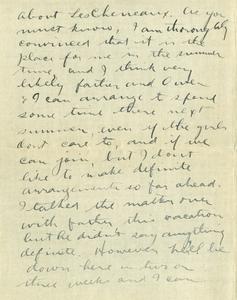 about Les Cheneaux. As you
must know, I am thoroughly
convinced that it is the
place for me in the summer
time, and I think very
likely father and Owen
& I can arrange to spend
some time there next
summer, even if the girls
don't care to, and if we
can join, but I don't
like to make definite
arrangements so far ahead.
I talked the matter over
with father this vacation
but he didn't say anything
definite. However he'll be
down here in two or
three weeks and I can